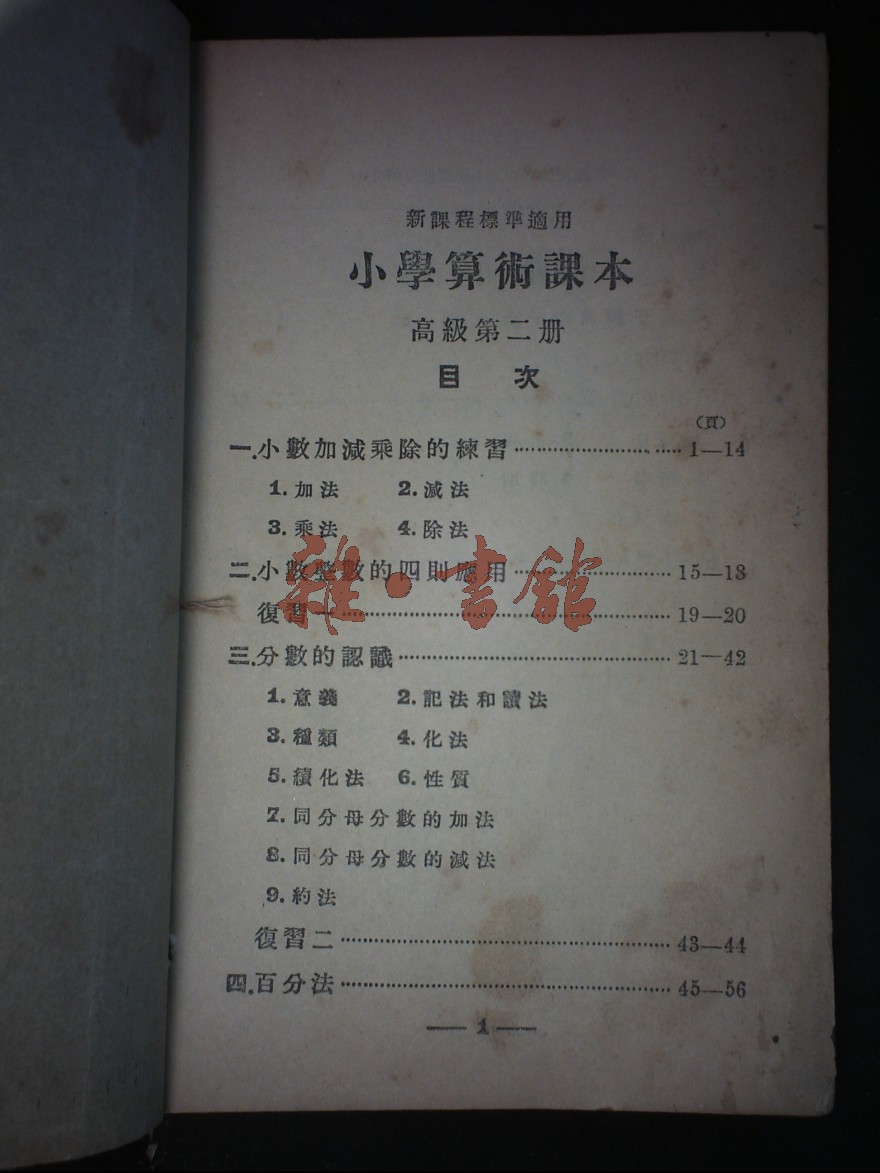 新課程標準適用
小學算術課本
高級第二册
目 次
(頁)
一.小數加減乘除的練習………………1—14
1.加法 2.減法
3.乘法 4.除法
二.小數整數的四則應用………………15—18
復習一………………19—20
三.分數的認識………………21—42
1.意義 2.記法和讀法
3.種類 4.化法
5.續化法 6.性質
7.同分母分數的加法
8.同分母分數的減法
9.約法
復習二………………43—44
四.百分法………………45—56
— 1 —
雜·書館